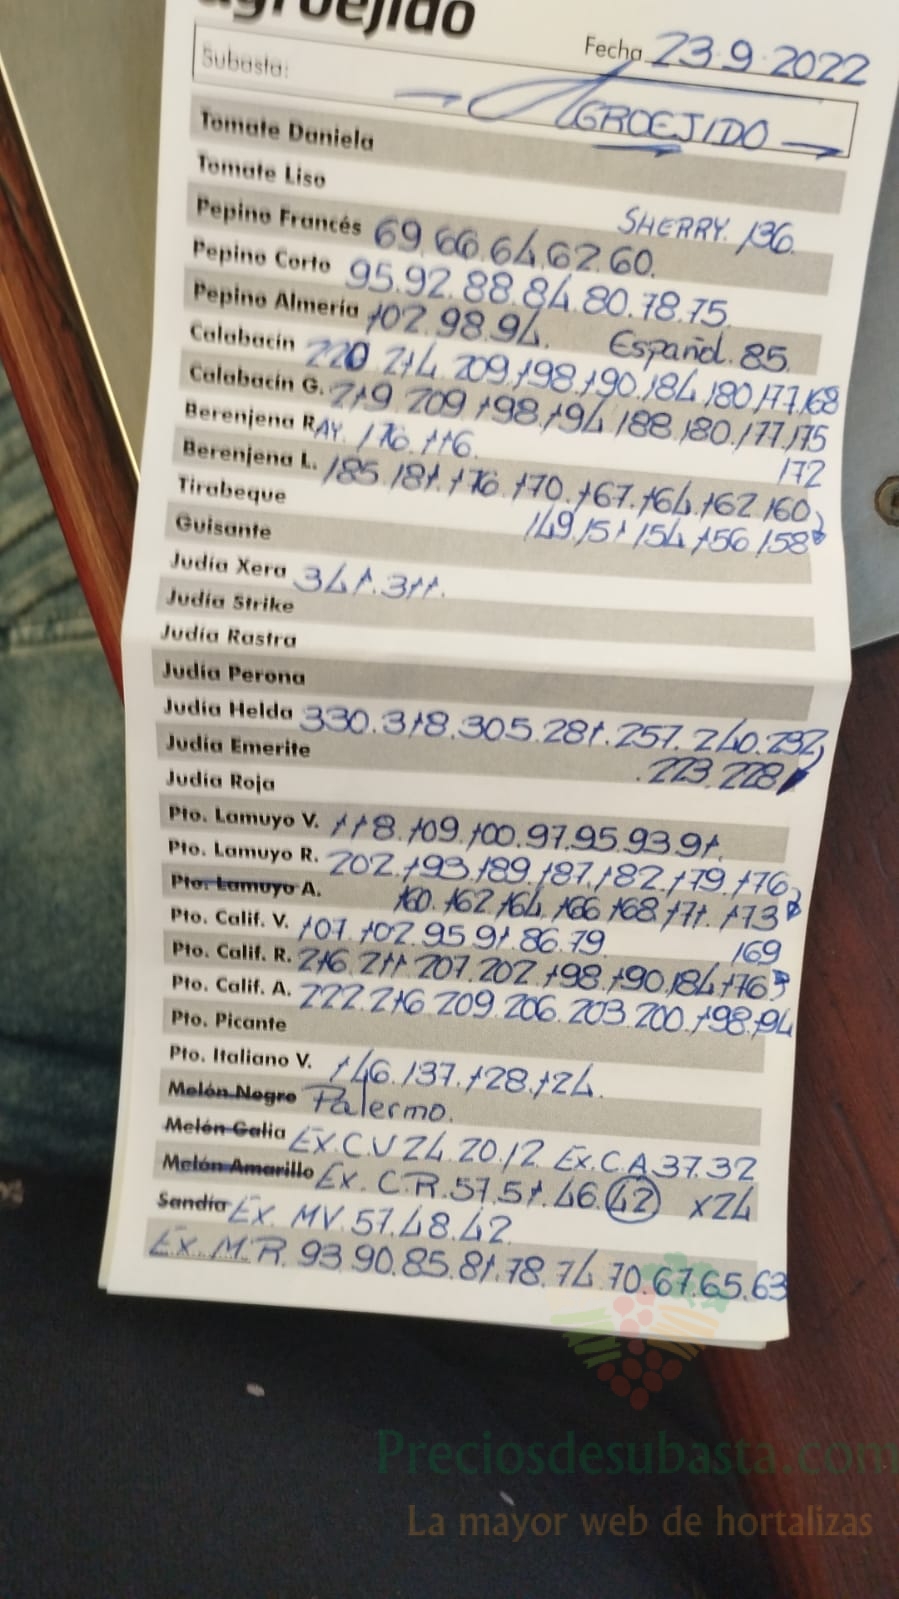 agroejido
Fecha 23.9.2022
Subasta: → AGROEJIDO →
Tomate Daniela
Tomate Liso SHERRY. 136.
Pepino Francés 69.66.64.62.60.
Pepino Corto 95.92.88.84.80.78.75.
Pepino Almería 102.98.94. Español. 85.
Calabacín 220 214 209.198.190.184.180.177.168
Calabacín G. 219 209 198.194 188.180.177.175
172
Berenjena RAY. 176.116.
Berenjena L. 185.181.176.170.167.164.162.160
Tirabeque 149.151 154 156 158
Guisante
Judía Xera 341.311.
Judía Strike
Judía Rastra
Judía Perona
Judía Helda 330.318.305.281.257.240.232
Judía Emerite .223.228
Judía Roja
Pto. Lamuyo V. 118.109.100.97.95.93.91.
Pto. Lamuyo R. 202.193.189.187.182.179.176
Pto. Lamuyo A. 160.162.164.166.168.171.173
169
Pto. Calif. V. 107.102.95.91.86.79
Pto. Calif. R. 216.211.207.202.198.190.184.176
Pto. Calif. A. 222.216 209.206.203.200.198.194
Pto. Picante
Pto. Italiano V. 146.137.128.124.
Melón Negro Palermo.
Melón Galia Ex.CV 24.20.12 Ex.C.A 37.32
Melón Amarillo Ex. C.R.57.51.46.42 x24
Sandía Ex. MV.57.48.42
Ex. M.R. 93.90.85.81.78.74.70.67.65.63
Preciosdesubasta.com
La mayor web de hortalizas